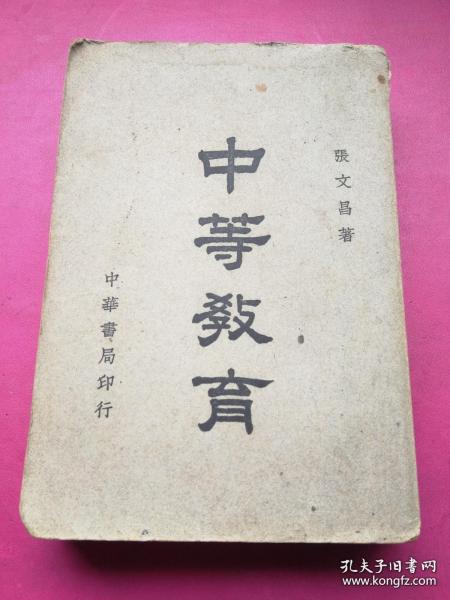 張文昌著
中等教育
中華書局印行
孔夫子旧书网
www.kongfz.com